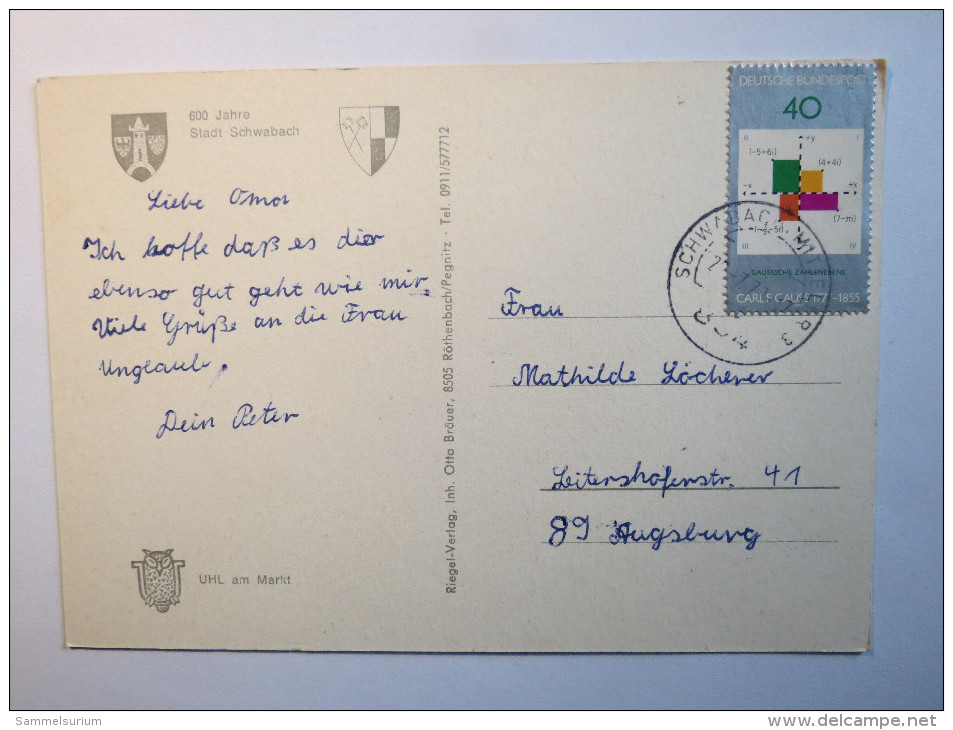 600 Jahre
Stadt Schwabach
Liebe Oma
Ich hoffe daß es dir
ebenso gut geht wie mir.
Viele Grüße an die Frau
Unglaub.
Dein Peter
UHL am Markt
Riegel-Verlag, Inh. Otto Bräuer, 8505 Röthenbach/Pegnitz · Tel. 0911/577712
DEUTSCHE BUNDESPOST
40
II
+y
I
(-5+6i)
(4+4i)
-x
+x
(-4-5i)
(7-πi)
III
IV
GAUSSSCHE ZAHLENEBENE
CARL F. GAUSS 1777-1855
SCHWABACH, MITTELFR
3
Frau
Mathilde Löcherer
Leitershoferstr. 41
89 Augsburg
Sammelsurium
www.delcampe.net